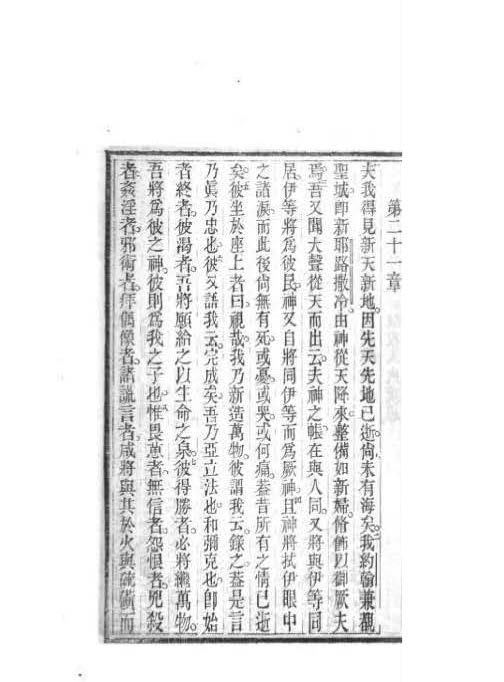 第二十一章
夫我得見新天新地。因先天先地已逝。尙未有海矣。我約翰兼觀
聖城卽新耶路撒冷由神從天降來整備如新婦脩飾以御厥夫
焉。吾又聞大聲從天而出云。夫神之帳在與人同。又將與伊等同
居。伊等將爲彼民。神又自將同伊等而爲厥神。且神將拭伊眼中
之諸淚而此後尙無有死。或憂。或哭。或何痛。蓋昔所有之情已逝
矣。彼坐於座上者曰。視哉。我乃新造萬物。彼謂我云。錄之。蓋是言
乃眞乃忠也。彼又語我云。完成矣。吾乃亞立法也。和彌克也。卽始
者終者。彼渴者。吾將願給之以生命之泉。彼得勝者。必將繼萬物。
吾將爲彼之神。彼則爲我之子也。惟畏葸者無信者。怨恨者。兇殺
者。姦淫者。邪術者。拜偶像者。諸謊言者。咸將與其於火與硫磺而